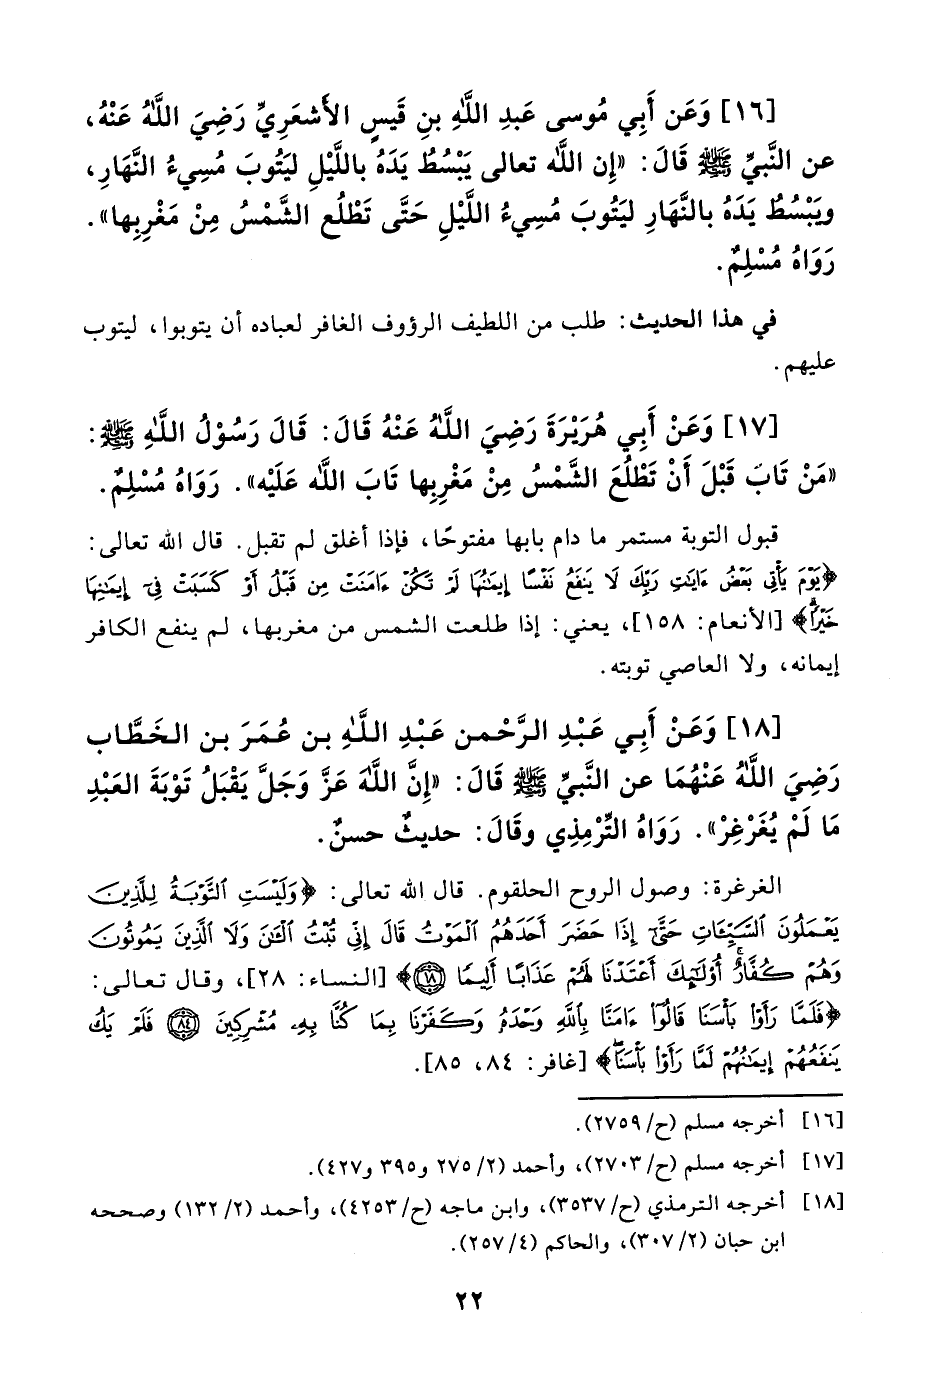 [١٦] وَعَن أَبِي مُوسى عَبدِ اللَّهِ بنِ قَيسٍ الأَشعَرِيِّ رَضِيَ اللَّهُ عَنْهُ،
عن النَّبيِّ ﷺ قَالَ: «إِن اللَّه تعالى يَبْسُطُ يَدَهُ بالليْلِ ليَتُوبَ مُسِيءُ النَّهَارِ،
ويَبْسُطُ يَدَهُ بالنَّهَارِ ليَتُوبَ مُسِيءُ اللَّيْلِ حَتَّى تَطْلُع الشَّمْسُ مِنْ مَغْرِبِها».
رَوَاهُ مُسْلِمٌ.
في هذا الحديث: طلب من اللطيف الرؤوف الغافر لعباده أن يتوبوا، ليتوب
عليهم.
[١٧] وَعَنْ أَبِي هُرَيْرَةَ رَضِيَ اللَّهُ عَنْهُ قَالَ: قَالَ رَسُوْلُ اللَّهِ ﷺ:
«مَنْ تَابَ قَبْلَ أَنْ تَطْلُعَ الشَّمْسُ مِنْ مَغْرِبِها تَابَ اللَّه عَلَيْه». رَوَاهُ مُسْلِمٌ.
قبول التوبة مستمر ما دام بابها مفتوحًا، فإذا أغلق لم تقبل. قال الله تعالى:
﴿يَوْمَ يَأْتِى بَعْضُ ءَايَٰتِ رَبِّكَ لَا يَنفَعُ نَفْسًا إِيمَٰنُهَا لَمْ تَكُنْ ءَامَنَتْ مِن قَبْلُ أَوْ كَسَبَتْ فِىٓ إِيمَٰنِهَا
خَيْرًا﴾ [الأنعام: ١٥٨]، يعني: إذا طلعت الشمس من مغربها، لم ينفع الكافر
إيمانه، ولا العاصي توبته.
[١٨] وَعَنْ أَبِي عَبْدِ الرَّحْمن عَبْدِ اللَّهِ بن عُمَرَ بن الخَطَّاب
رَضِيَ اللَّهُ عَنْهُمَا عن النَّبيِّ ﷺ قَالَ: «إِنَّ اللَّهَ عَزَّ وَجَلَّ يَقْبَلُ تَوْبَةَ العَبْدِ
مَا لَمْ يُغَرْغِرْ». رَوَاهُ التِّرْمِذِي وقَالَ: حديثٌ حسنٌ.
الغرغرة: وصول الروح الحلقوم. قال الله تعالى: ﴿وَلَيْسَتِ ٱلتَّوْبَةُ لِلَّذِينَ
يَعْمَلُونَ ٱلسَّيِّـَٔاتِ حَتَّىٰٓ إِذَا حَضَرَ أَحَدَهُمُ ٱلْمَوْتُ قَالَ إِنِّى تُبْتُ ٱلْـَٰٔنَ وَلَا ٱلَّذِينَ يَمُوتُونَ
وَهُمْ كُفَّارٌ أُو۟لَٰٓئِكَ أَعْتَدْنَا لَهُمْ عَذَابًا أَلِيمًا ١٨﴾ [النساء: ٢٨]، وقال تعالى:
﴿فَلَمَّا رَأَوْا۟ بَأْسَنَا قَالُوٓا۟ ءَامَنَّا بِٱللَّهِ وَحْدَهُۥ وَكَفَرْنَا بِمَا كُنَّا بِهِۦ مُشْرِكِينَ ٨٤ فَلَمْ يَكُ
يَنفَعُهُمْ إِيمَٰنُهُمْ لَمَّا رَأَوْا۟ بَأْسَنَا﴾ [غافر: ٨٤، ٨٥].
[١٦] أخرجه مسلم (ح/ ٢٧٥٩).
[١٧] أخرجه مسلم (ح/ ٢٧٠٣)، وأحمد (٢/ ٢٧٥ و٣٩٥ و٤٢٧).
[١٨] أخرجه الترمذي (ح/ ٣٥٣٧)، وابن ماجه (ح/ ٤٢٥٣)، وأحمد (٢/ ١٣٢) وصححه
ابن حبان (٢/ ٣٠٧)، والحاكم (٤/ ٢٥٧).
٢٢